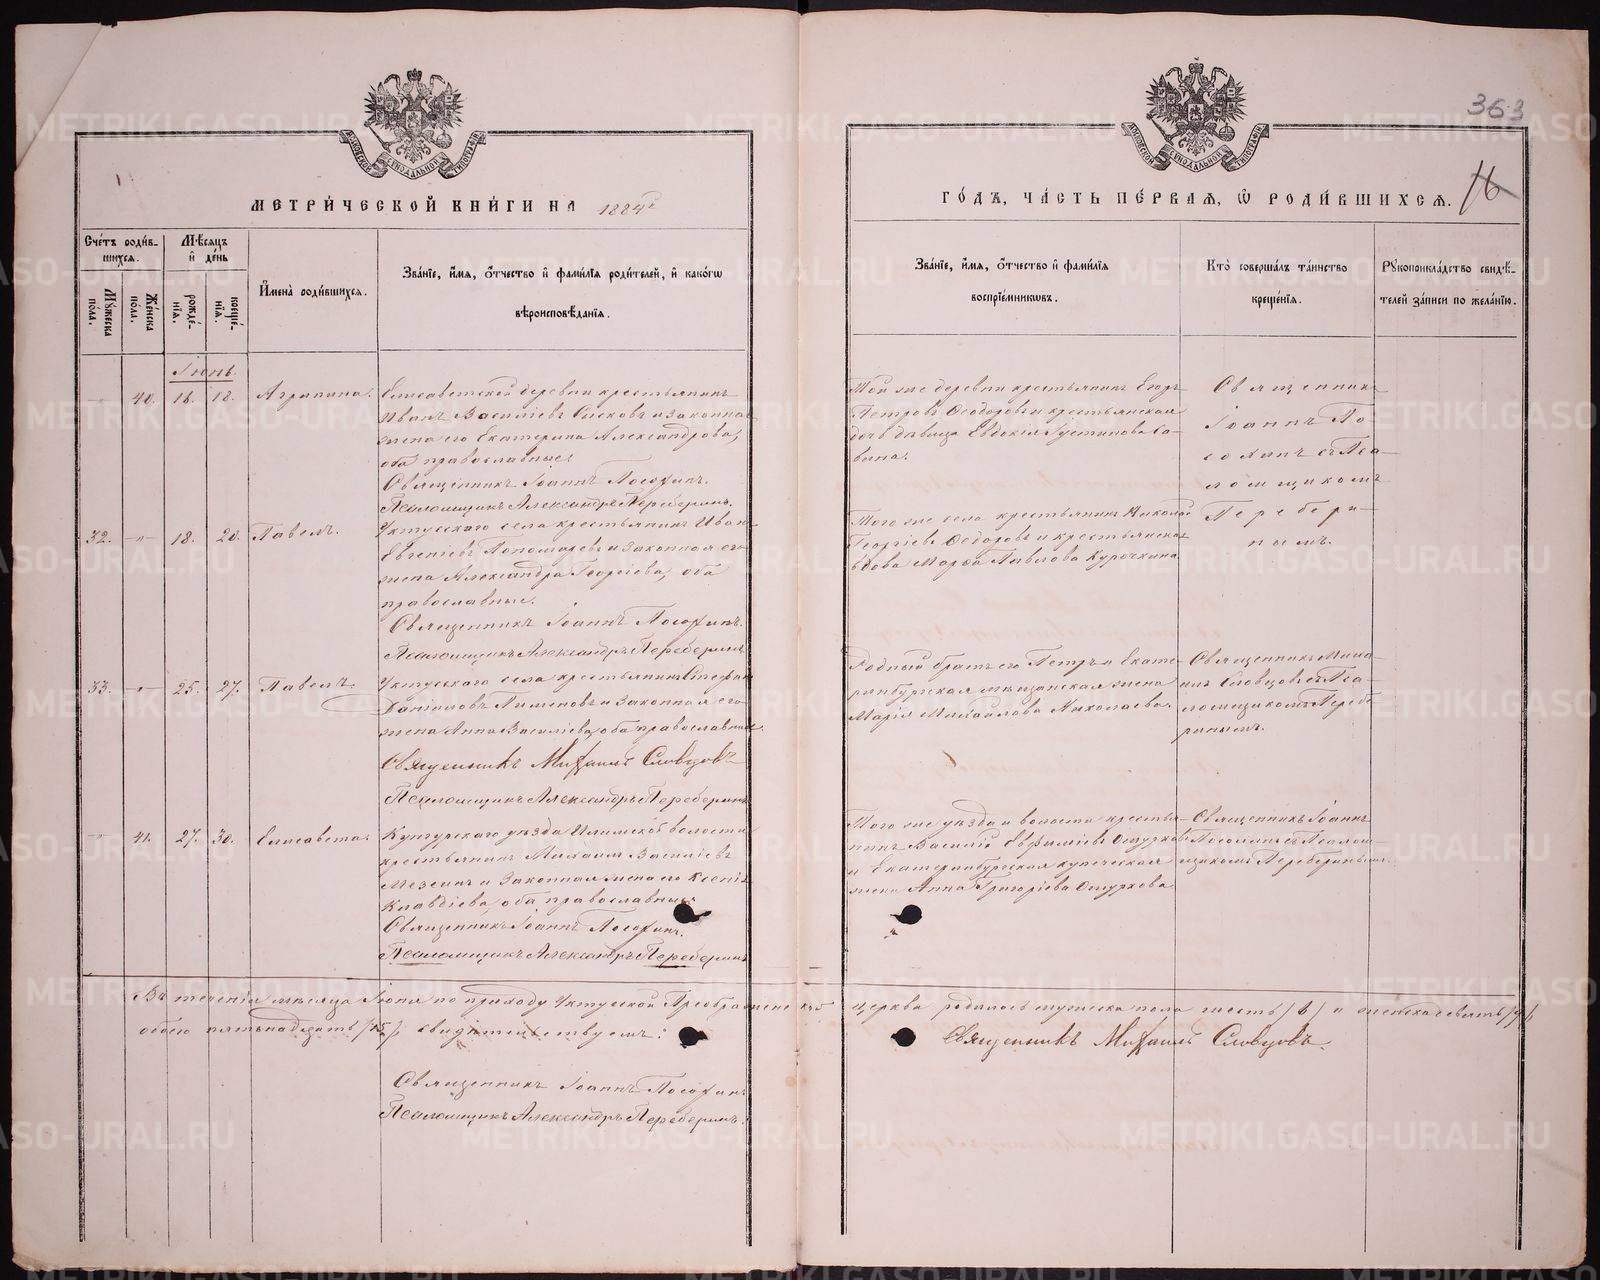 363
16
МОСКОВСКОЙ СѴНОДАЛЬНОЙ ТИПОГРАФІИ
МОСКОВСКОЙ СѴНОДАЛЬНОЙ ТИПОГРАФІИ
МЕТРИ́ЧЕСКОЙ КНИ́ГИ НА 1884й
ГО́ДЪ, ЧА́СТЬ ПЕ́РВАЯ, Ѡ РОДИ́ВШИХСЯ.
Сче́тъ роди́в-
шихся.
Му́жеска
по́ла.
Же́нска
по́ла.
Мѣ́сяцъ
и҆ де́нь
рожде́-
нїя.
креще́-
нїя.
И҆мена̀ роди́вшихся.
Зва́нїе, и҆́мя, о҆́тчество и҆ фами́лїя роди́телей, и҆ како́гѡ
вѣроисповѣ́данїя.
Зва́нїе, и҆́мя, о҆́тчество и҆ фами́лїя
воспрїе́мникѡвъ.
Кто̀ соверша́лъ та́инство
креще́нїя.
Рꙋкоприкла́дство свидѣ́-
телей за́писи по жела́нїю.
Іюнь.
40. 16. 18. Агрипина.
Елисаветской деревни крестьянинъ
Иванъ Василіевъ и законная
жена его Екатерина Александрова,
оба православные.
Священникъ Іоаннъ
Псаломщикъ Александръ Переберинъ.
Той же деревни крестьянинъ Егоръ
Петровъ Ѳеодоровъ и крестьянская
дочь девица Евдокія Іустинова Са-
вина.
Священникъ
Іоаннъ По-
съ Пса-
ломщикомъ
Перебери-
нымъ.
32. -"- 18. 20. Павелъ.
Уктусскаго села крестьянинъ Иванъ
Евгеніевъ Пономаревъ и законная его
жена Александра Георгіева, оба
православные.
Священникъ Іоаннъ
Псаломщикъ Александръ Переберинъ
Того же села крестьянинъ Николай
Георгіевъ Ѳедоровъ и крестьянская
вдова Марѳа Павлова Курочкина
33. -"- 25. 27. Павелъ.
Уктусскаго села крестьянинъ Стефанъ
Даніиловъ Пименовъ и законная его
жена Анна Василіева, оба православные.
Священникъ Михаилъ Словцовъ
Псаломщикъ Александръ Переберинъ
Родный братъ его Петръ и Екате-
ринбургская мѣщанская жена
Марія Михайлова Николаева.
Священникъ Миха-
илъ Словцовъ съ Пса-
ломщикомъ Перебе-
ринымъ.
-"- 41. 27. 30. Елисавета.
Кунгурскаго уѣзда Илимской волости
крестьянинъ Михаилъ Василіевъ
Мезенинъ и законная жена его Ксенія
Клавдіева, оба православные
Священникъ Іоаннъ
Псаломщикъ Александръ Переберинъ
Того же уѣзда и волости крестья-
нинъ Василій Евфиміевъ
и Екатеринбургская купеческая
жена Анна Григоріева
Священникъ Іоаннъ
съ Псалом-
щикомъ Переберинымъ.
Въ теченіи мѣсяца Іюня по приходу Уктусской Преображенской церкви родилось мужеска пола шесть /6/ и женска девять /9/
обоего пятьнадцать /15/, свидѣтельствуемъ:
Священникъ Михаилъ Словцовъ.
Священникъ Іоаннъ
Псаломщикъ Александръ Переберинъ.
METRIKI.GASO-URAL.RU